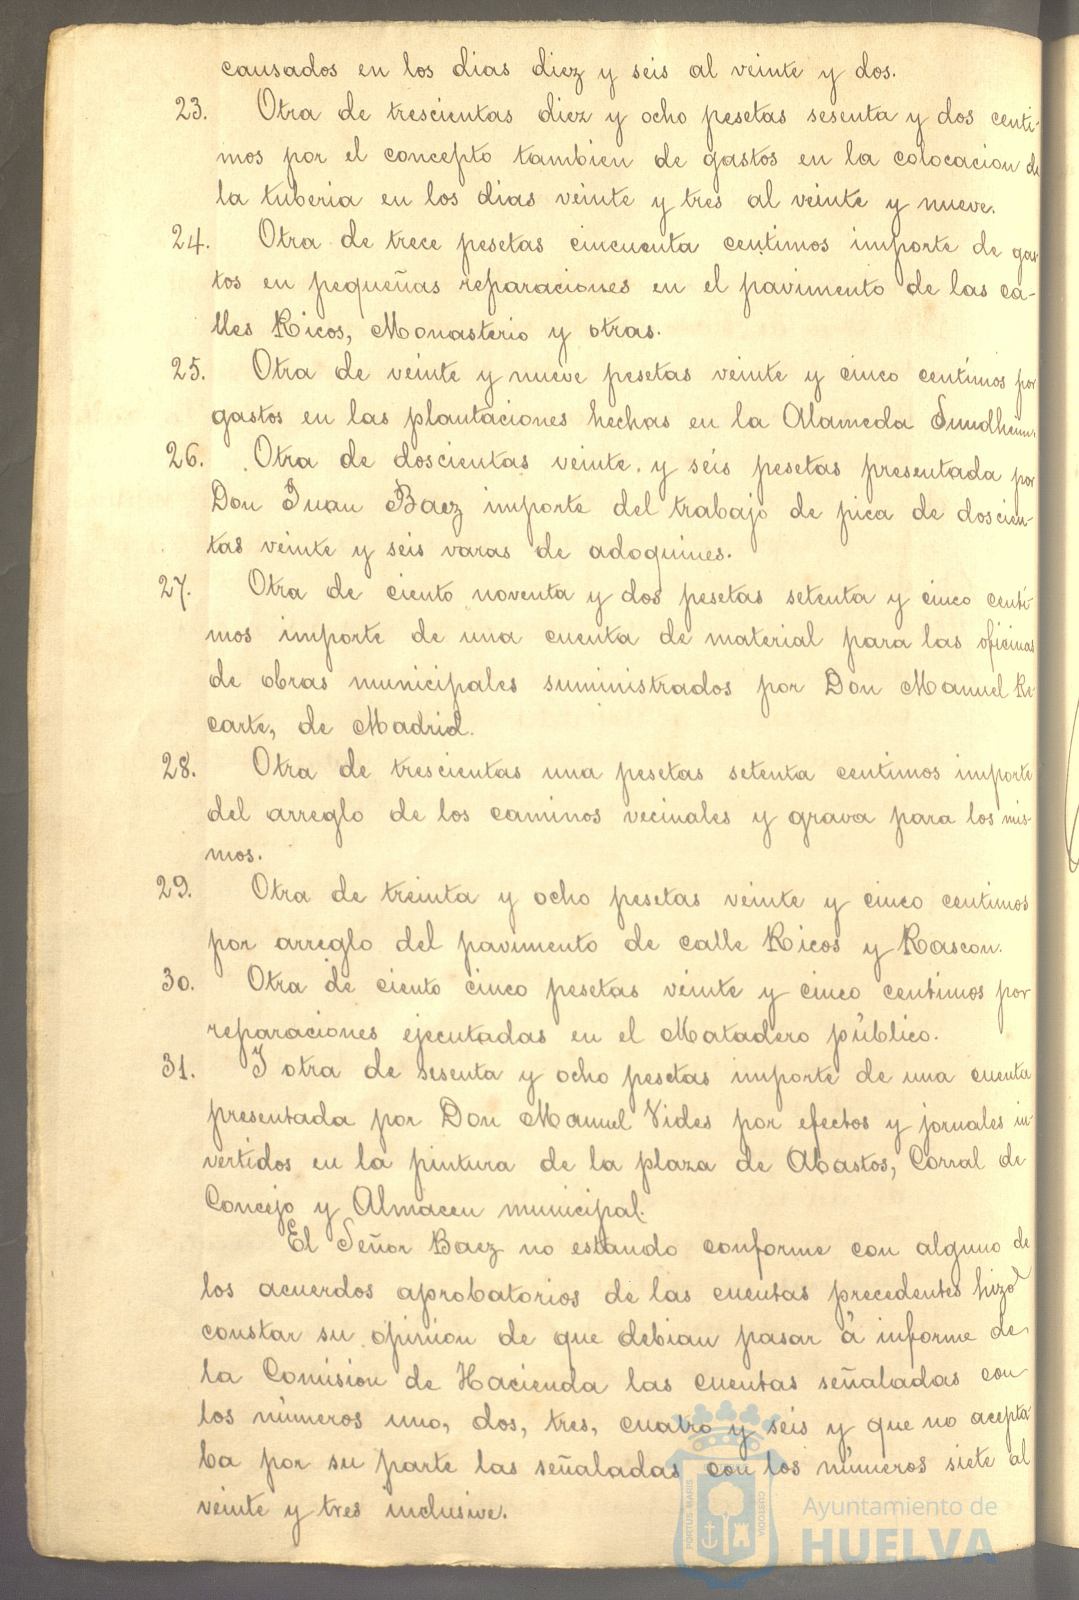 causados en los dias diez y seis al veinte y dos.
23. Otra de trescientas diez y ocho pesetas sesenta y dos centi-
mos por el concepto tambien de gastos en la colocacion de
la tuberia en los dias veinte y tres al veinte y nueve.
24. Otra de trece pesetas cincuenta centimos importe de gas
tos en pequeñas reparaciones en el pavimento de las ca-
lles Ricos, Monasterio y otras.
25. Otra de veinte y nueve pesetas veinte y cinco centimos por
gastos en las plantaciones hechas en la Alameda Sundheim.
26. Otra de doscientas veinte y seis pesetas presentada por
Don Juan Baez importe del trabajo de pica de doscien-
tas veinte y seis varas de adoquines.
27. Otra de ciento noventa y dos pesetas setenta y cinco centi-
mos importe de una cuenta de material para las oficinas
de obras municipales suministrados por Don Manuel Re-
carte, de Madrid.
28. Otra de trescientas una pesetas setenta centimos importe
del arreglo de los caminos vecinales y grava para los mis-
mos.
29. Otra de treinta y ocho pesetas veinte y cinco centimos
por arreglo del pavimento de calle Ricos y Rascon.
30. Otra de ciento cinco pesetas veinte y cinco centimos por
reparaciones ejecutadas en el Matadero público.
31. Y otra de sesenta y ocho pesetas importe de una cuenta
presentada por Don Manuel Vides por efectos y jornales in-
vertidos en la pintura de la plaza de Abastos, Corral de
Concejo y Almacen municipal.
El Señor Baez no estando conforme con alguno de
los acuerdos aprobatorios de las cuentas precedentes hizo
constar su opinion de que debian pasar á informe de
la Comision de Hacienda las cuentas señaladas con
los números uno, dos, tres, cuatro y seis y que no acepta
ba por su parte las señaladas con los números siete al
veinte y tres inclusive.
PORTUS MARIS
CUSTODIA
Ayuntamiento de
HUELVA